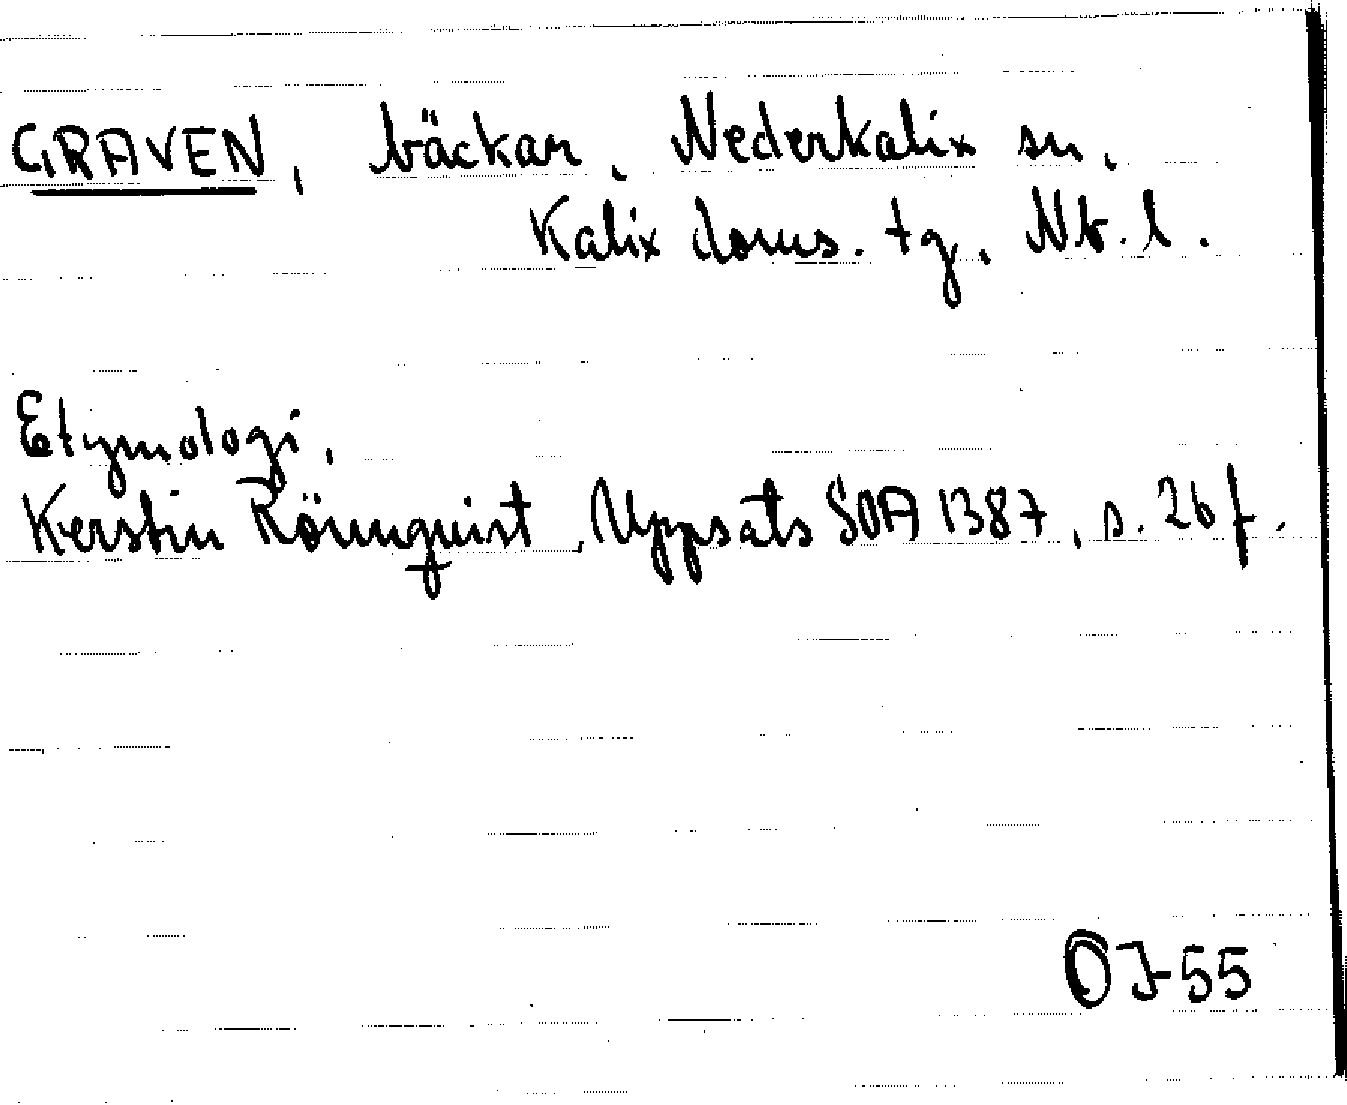 GRAVEN, bäckar, Nederkalix sn,
Kalix doms. tg, Nb. l.
Etymologi,
Kerstin Rönnquist, Uppsats SOA 1387, s. 26 f.
OJ-55